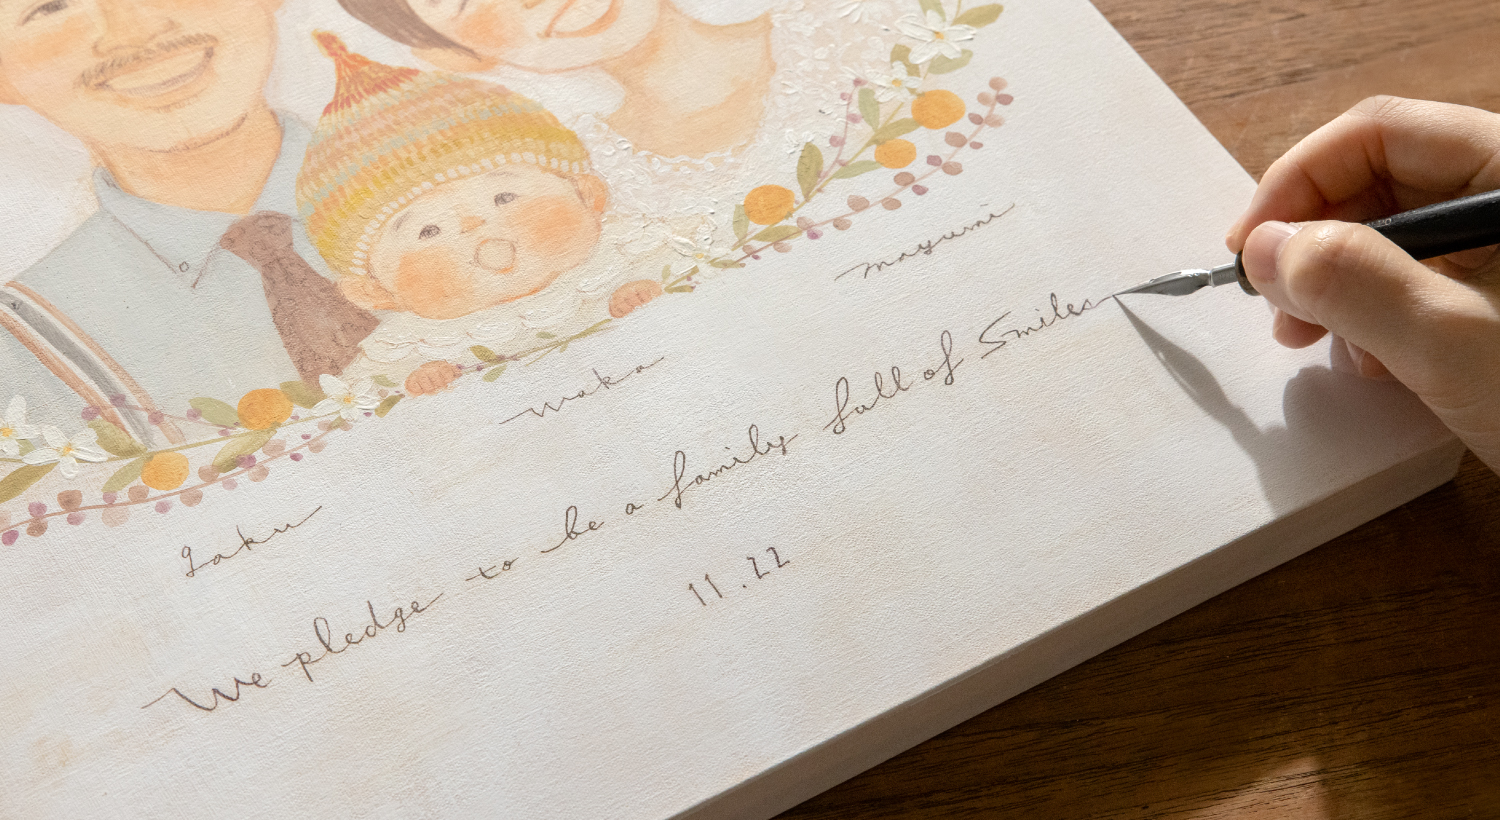 mayumi
waka
gaku
We pledge to be a family full of Smiles
11.22